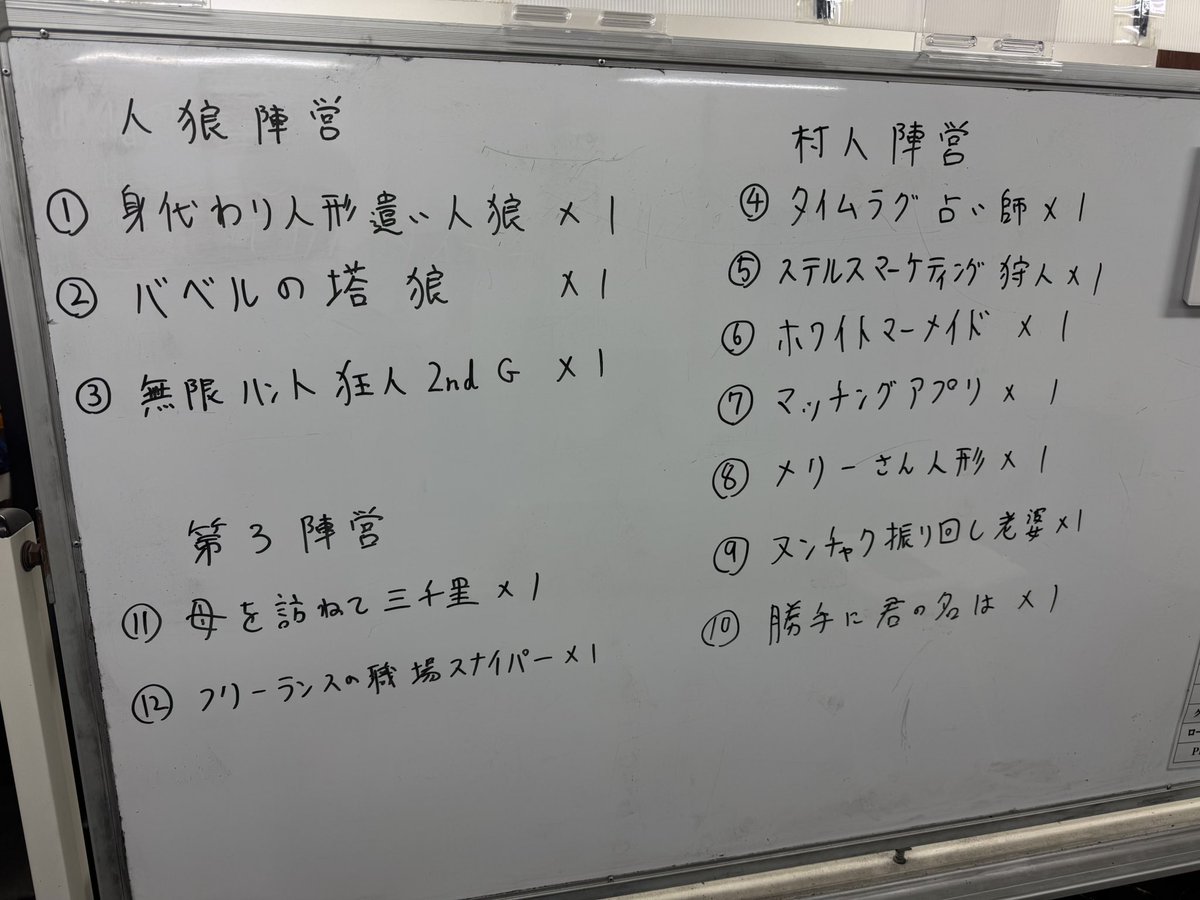 人狼陣営
① 身代わり人形遣い人狼 × 1
② バベルの塔 狼 × 1
③ 無限ハント狂人 2nd G × 1
第3陣営
⑪ 母を訪ねて三千里 × 1
⑫ フリーランスの職場スナイパー × 1
村人陣営
④ タイムラグ占い師 × 1
⑤ ステルスマーケティング狩人 × 1
⑥ ホワイトマーメイド × 1
⑦ マッチングアプリ × 1
⑧ メリーさん人形 × 1
⑨ ヌンチャク振り回し老婆 × 1
⑩ 勝手に君の名は × 1